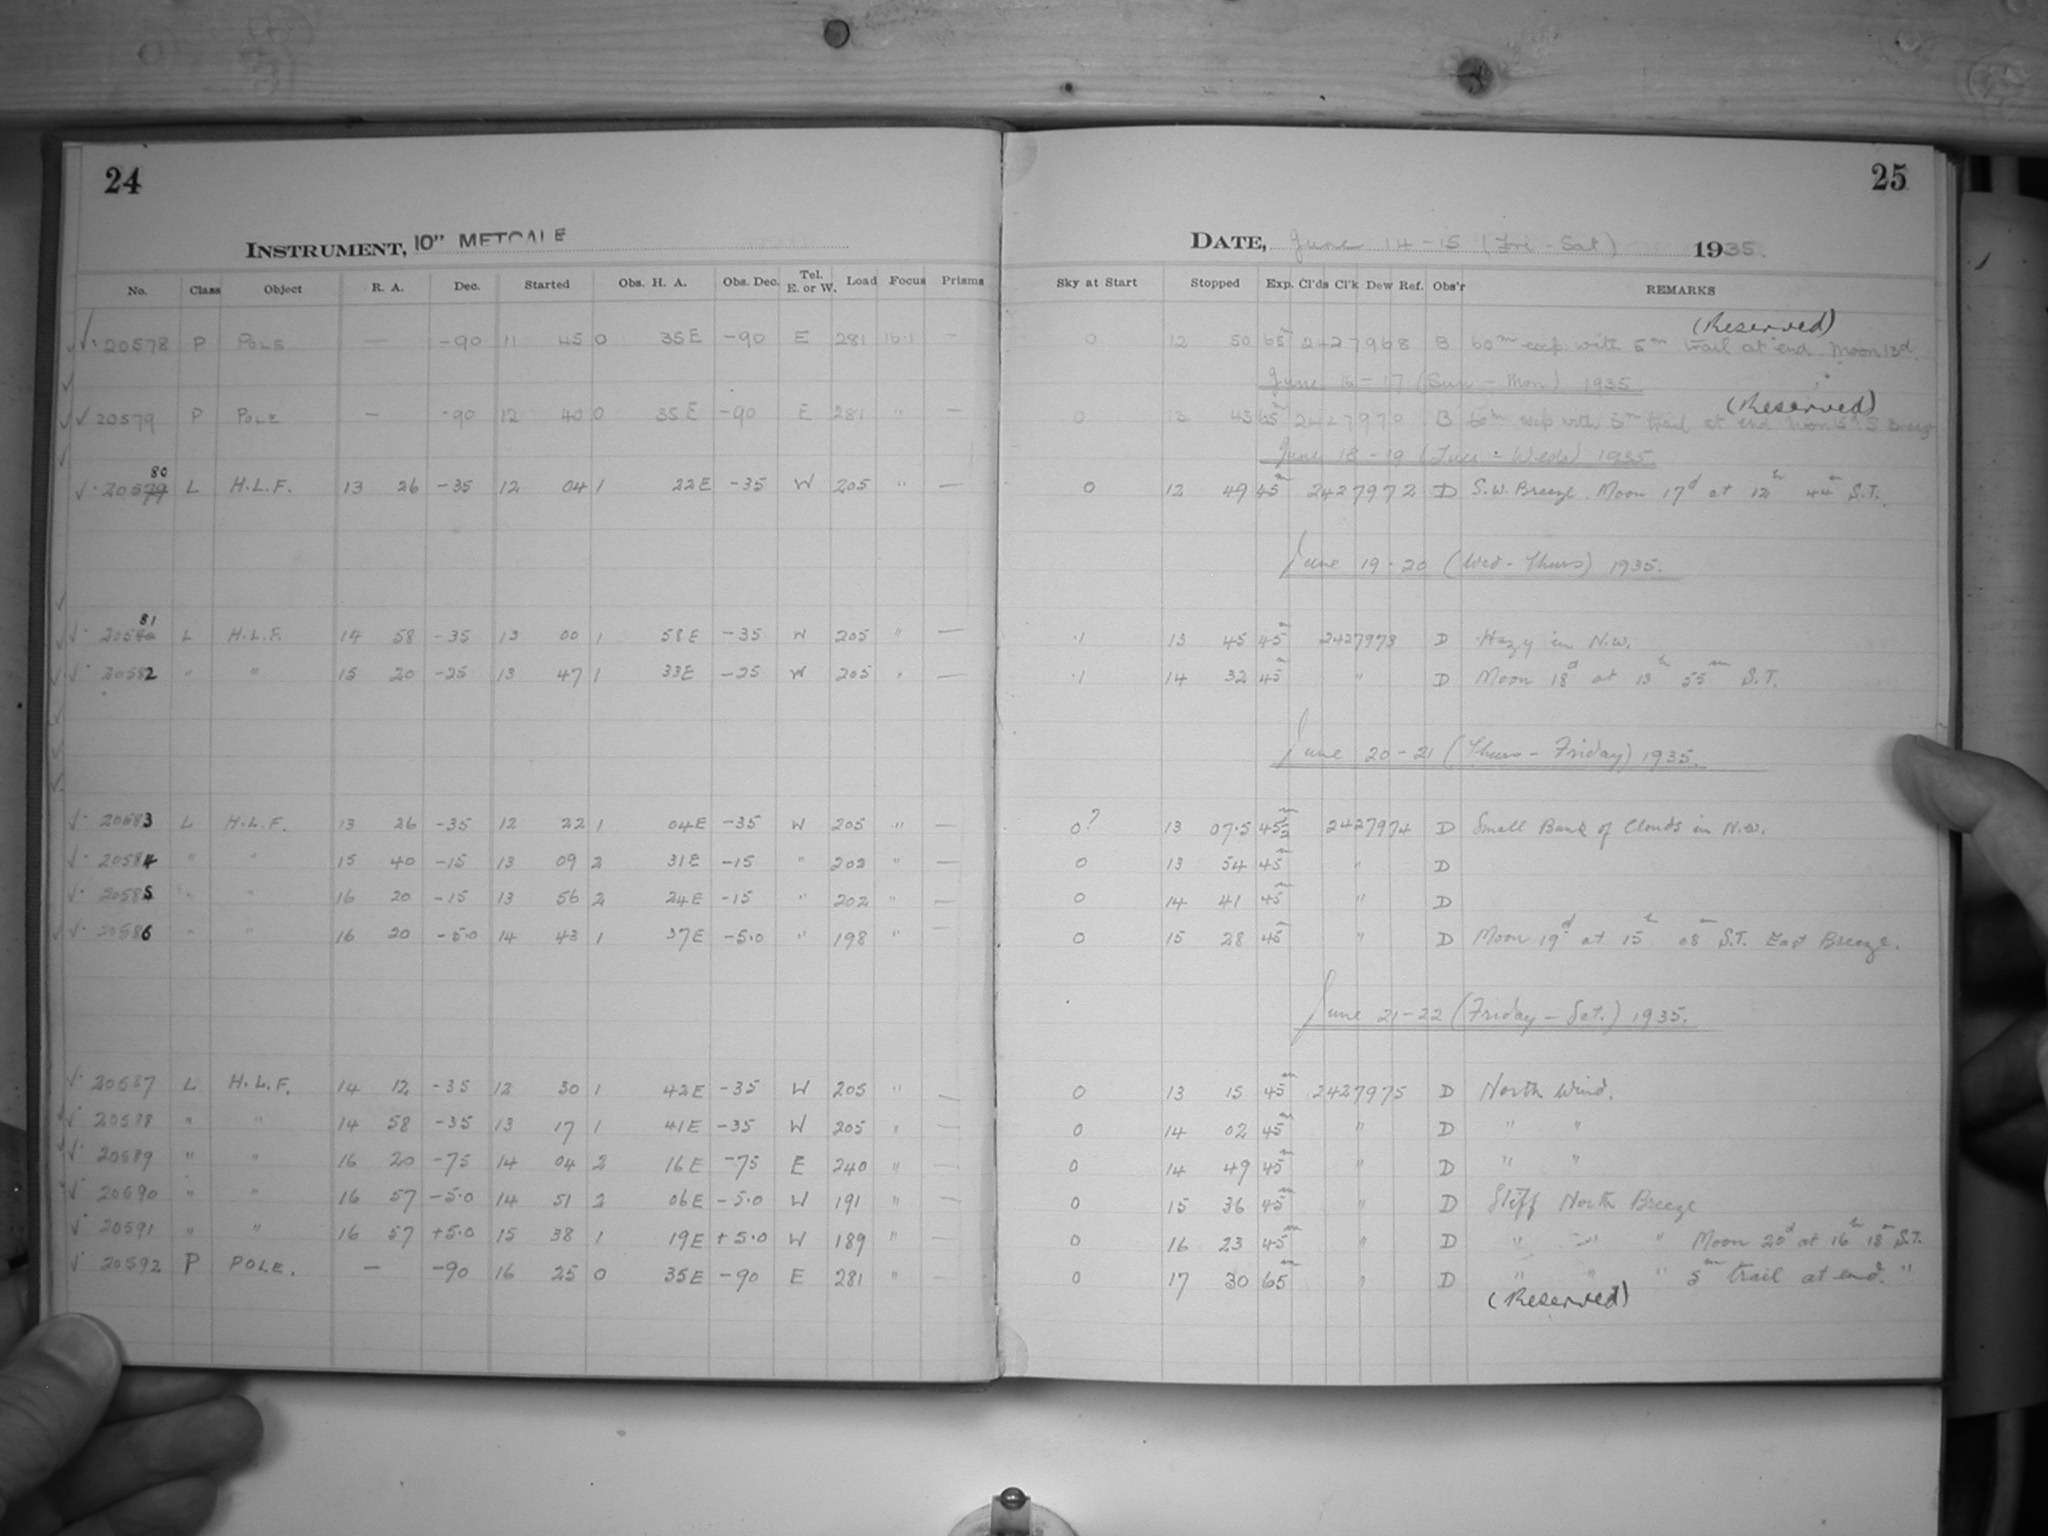 24
INSTRUMENT, 10" METCALF
No. Class Object R. A. Dec. Started Obs. H. A. Obs. Dec. Tel. E. or W. Load Focus Prisms
20578 P POLE — -90 11 45 0 35E -90 E 281 16.1 —
20579 P POLE — -90 12 40 0 35E -90 E 281 " —
20579 80 L H.L.F. 13 26 -35 12 04 1 22E -35 W 205 " —
2058 81 L H.L.F. 14 58 -35 13 00 1 58E -35 W 205 " —
20582 " " 15 20 -25 13 47 1 33E -25 W 205 " —
20583 L H.L.F. 13 26 -35 12 22 1 04E -35 W 205 " —
20584 " " 15 40 -15 13 09 2 31E -15 " 202 " —
20585 " " 16 20 -15 13 56 2 24E -15 " 202 " —
20586 " " 16 20 -5.0 14 43 1 37E -5.0 " 198 " —
20587 L H.L.F. 14 12 -35 12 30 1 42E -35 W 205 " —
20588 " " 14 58 -35 13 17 1 41E -35 W 205 " —
20589 " " 16 20 -75 14 04 2 16E -75 E 240 " —
20590 " " 16 57 -5.0 14 51 2 06E -5.0 W 191 " —
20591 " " 16 57 +5.0 15 38 1 19E +5.0 W 189 " —
20592 P POLE. — -90 16 25 0 35E -90 E 281 " —
25
DATE, June 14-15 (Fri - Sat) 1935.
Sky at Start Stopped Exp. Cl'ds Cl'k Dew Ref. Obs'r REMARKS
(Reserved)
0 12 50 65m 2427968 B 60m exp. with 5m trail at end Moon 13d.
June 16-17 (Sun - Mon) 1935
(Reserved)
0 13 45 65m 2427970 B 60m exp with 5m trail at end Moon 15d. S Breeze
June 18-19 (Tues - Weds) 1935
0 12 49 45m 2427972 D S.W. Breeze. Moon 17d at 12h 44m S.T.
June 19-20 (Wed - Thurs) 1935.
.1 13 45 45m 2427973 D Hazy in N.W.
.1 14 32 45m " D Moon 18d at 13h 55m S.T.
June 20-21 (Thurs - Friday) 1935.
0? 13 07.5 45½m 2427974 D Small Bank of Clouds in N.W.
0 13 54 45m " D
0 14 41 45m " D
0 15 28 45m " D Moon 19d at 15h 08m S.T. East Breeze.
June 21-22 (Friday - Sat.) 1935.
0 13 15 45m 2427975 D North Wind.
0 14 02 45m " D " "
0 14 49 45m " D " "
0 15 36 45m " D Stiff North Breeze
0 16 23 45m " D " " " Moon 20d at 16h 18m S.T.
0 17 30 65m " D " " " 5m trail at end. "
(Reserved)